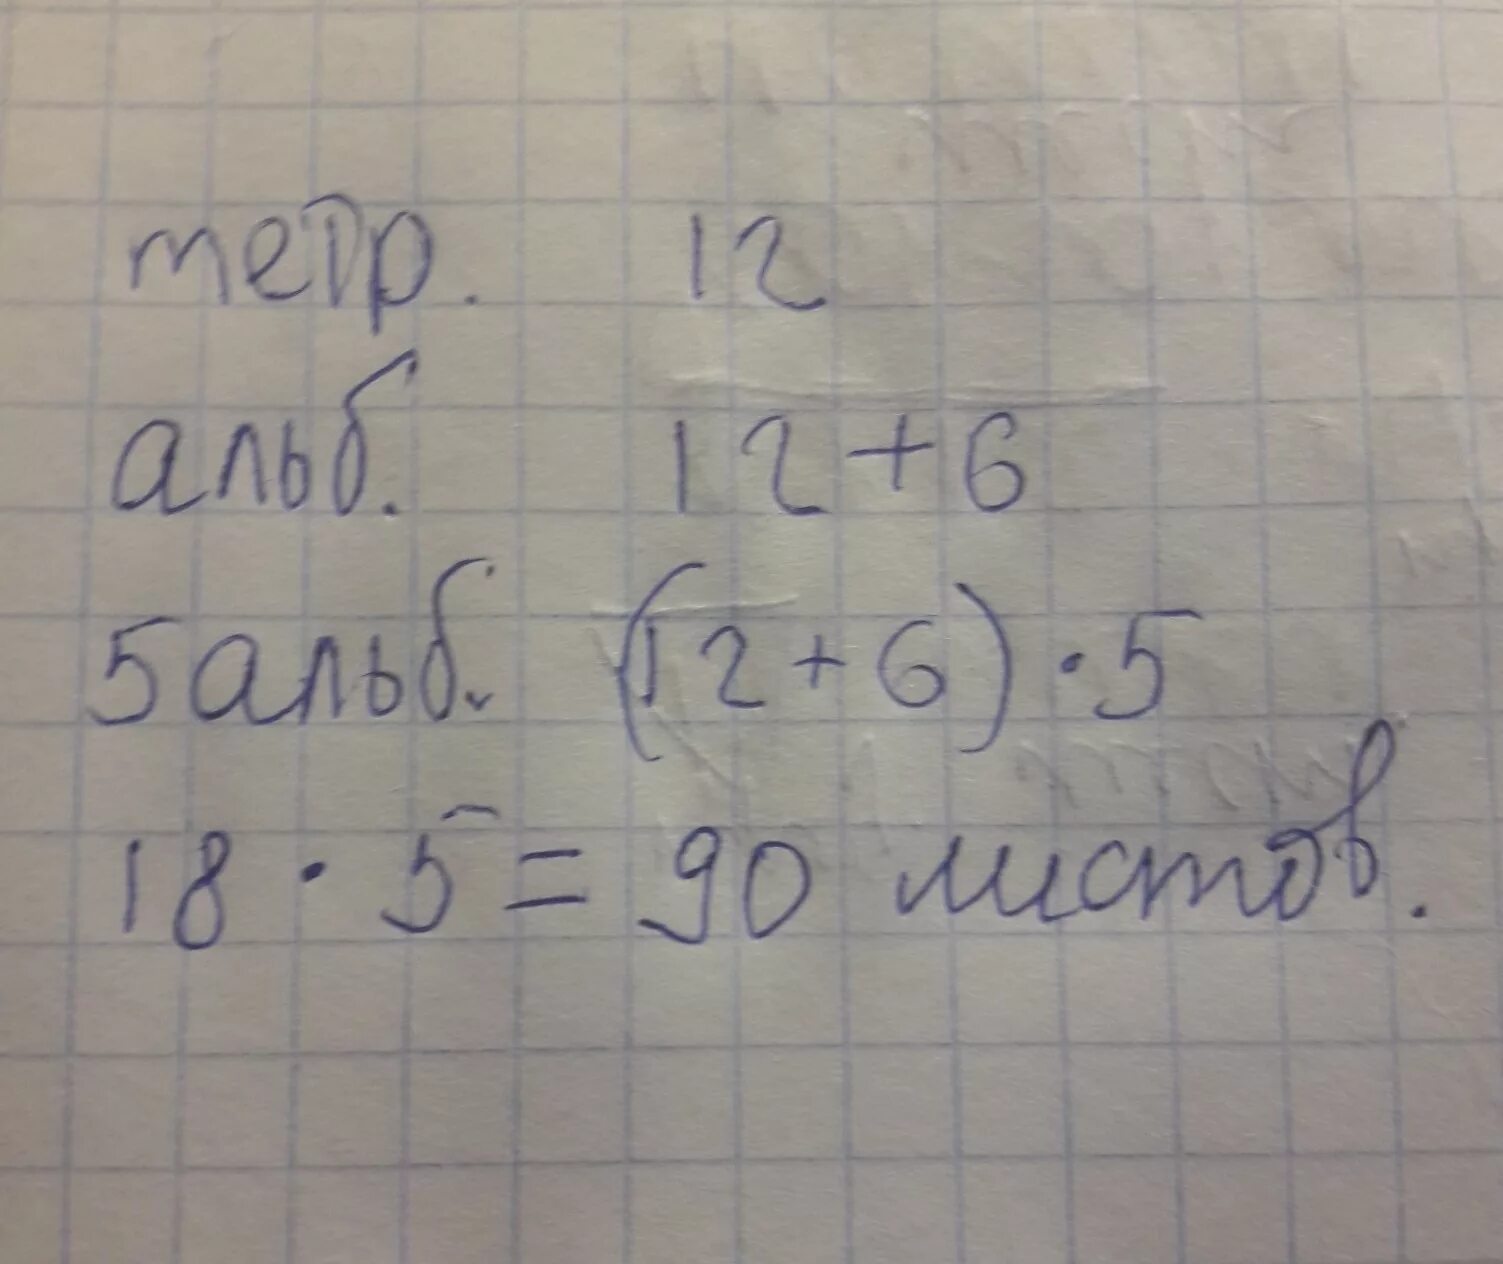 тетр. 12
альб. 12+6
5 альб. (12+6)·5
18·5=90 листов.